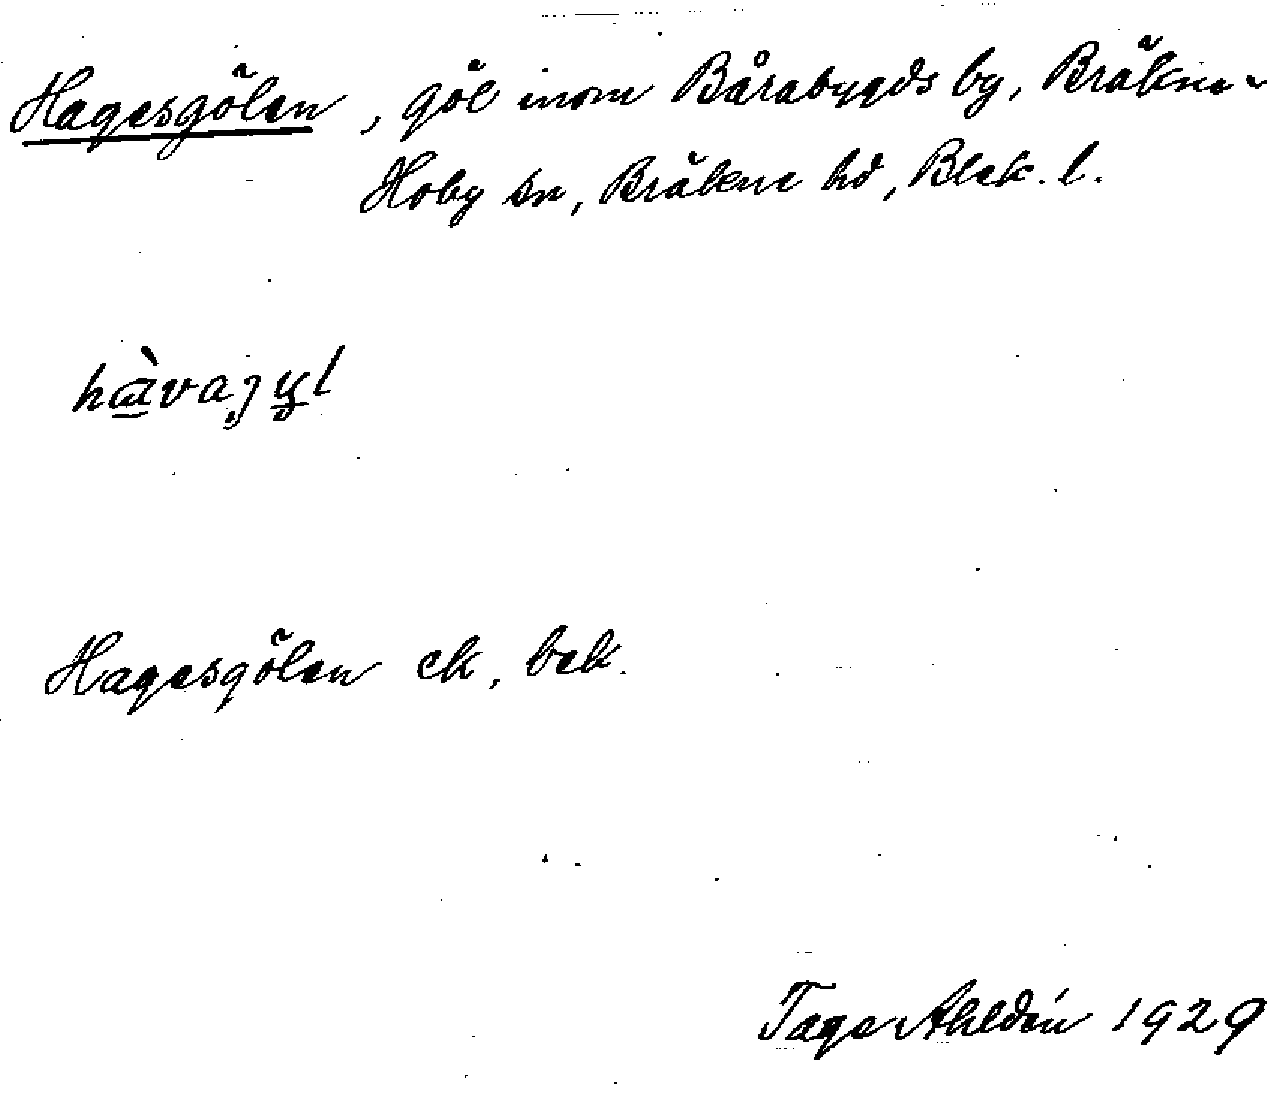 Hagesgölen, göl inom Bårabygds by, Bräkne-
Hoby sn, Bräkne hd, Blek. l.
hàvaȷyl
Hagesgölen ek, bek.
Tage Ahldén 1929